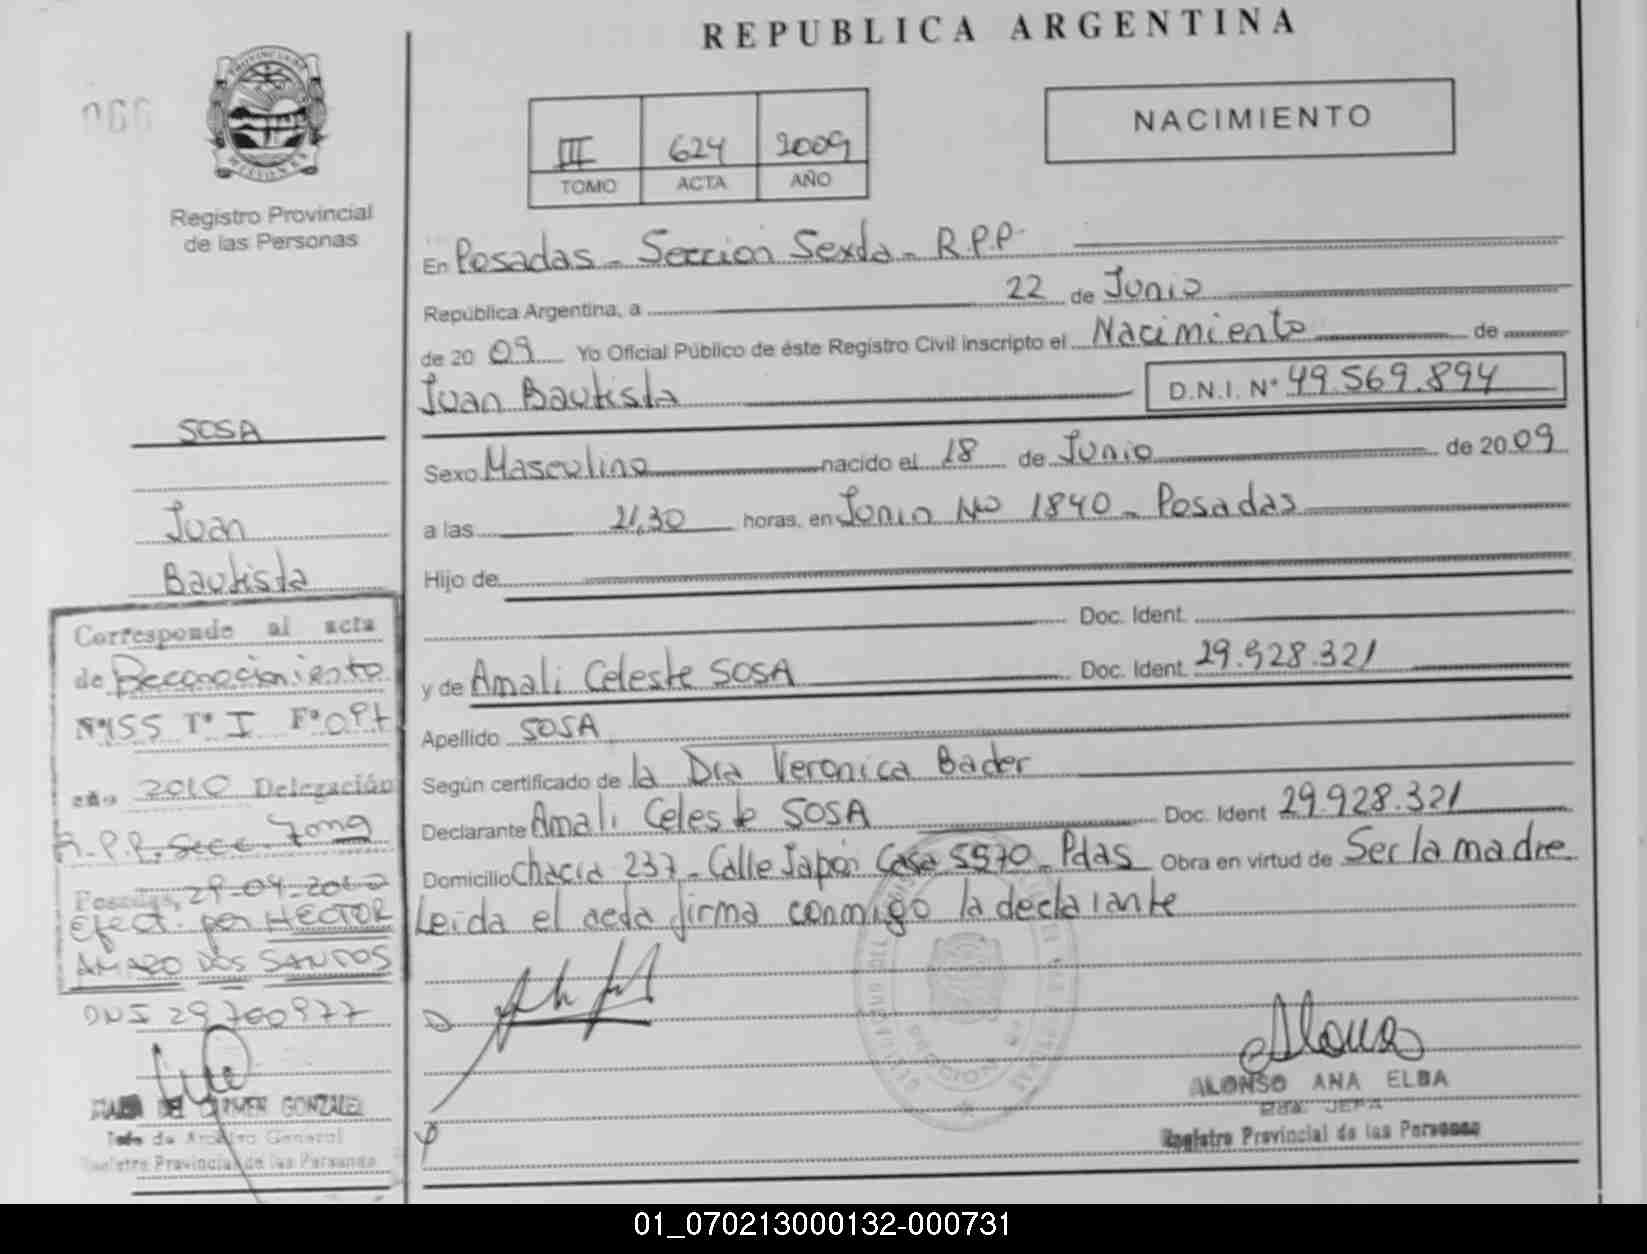 REPUBLICA ARGENTINA
066
PROVINCIA DE
MISIONES
Registro Provincial
de las Personas
III 624 2009
TOMO ACTA AÑO
NACIMIENTO
En Posadas - Sección Sexta - R.P.P
República Argentina, a 22 de Junio
de 20 09 Yo Oficial Público de éste Registro Civil inscripto el Nacimiento de
Juan Bautista D.N.I. Nº 49.569.894
Sexo Masculino nacido el 18 de Junio de 20 09
a las 21,30 horas, en Junin Nº 1840 - Posadas
Hijo de
Doc. Ident.
y de Amali Celeste SOSA Doc. Ident. 29.928.321
Apellido SOSA
Según certificado de la Dra Veronica Bader
Declarante Amali Celeste SOSA Doc. Ident 29.928.321
Domicilio Chacra 237 - Calle Japón Casa 5570 - Pdas Obra en virtud de Ser la madre
Leida el acta firma conmigo la declarante
ALONSO ANA ELBA
JEFA
Registro Provincial de las Personas
SOSA
Juan
Bautista
Corresponde al acta
de Reconocimiento
Nº 155 Tº I Fº
año 2010 Delegación
R.P.P. Secc.
Posadas, 29-04-2010
Efect. por HECTOR
AMARO DOS SANTOS
DNI 29760977
DEL CARMEN GONZALEZ
Jefe de Archivo General
Registro Provincial de las Personas
01_070213000132-000731